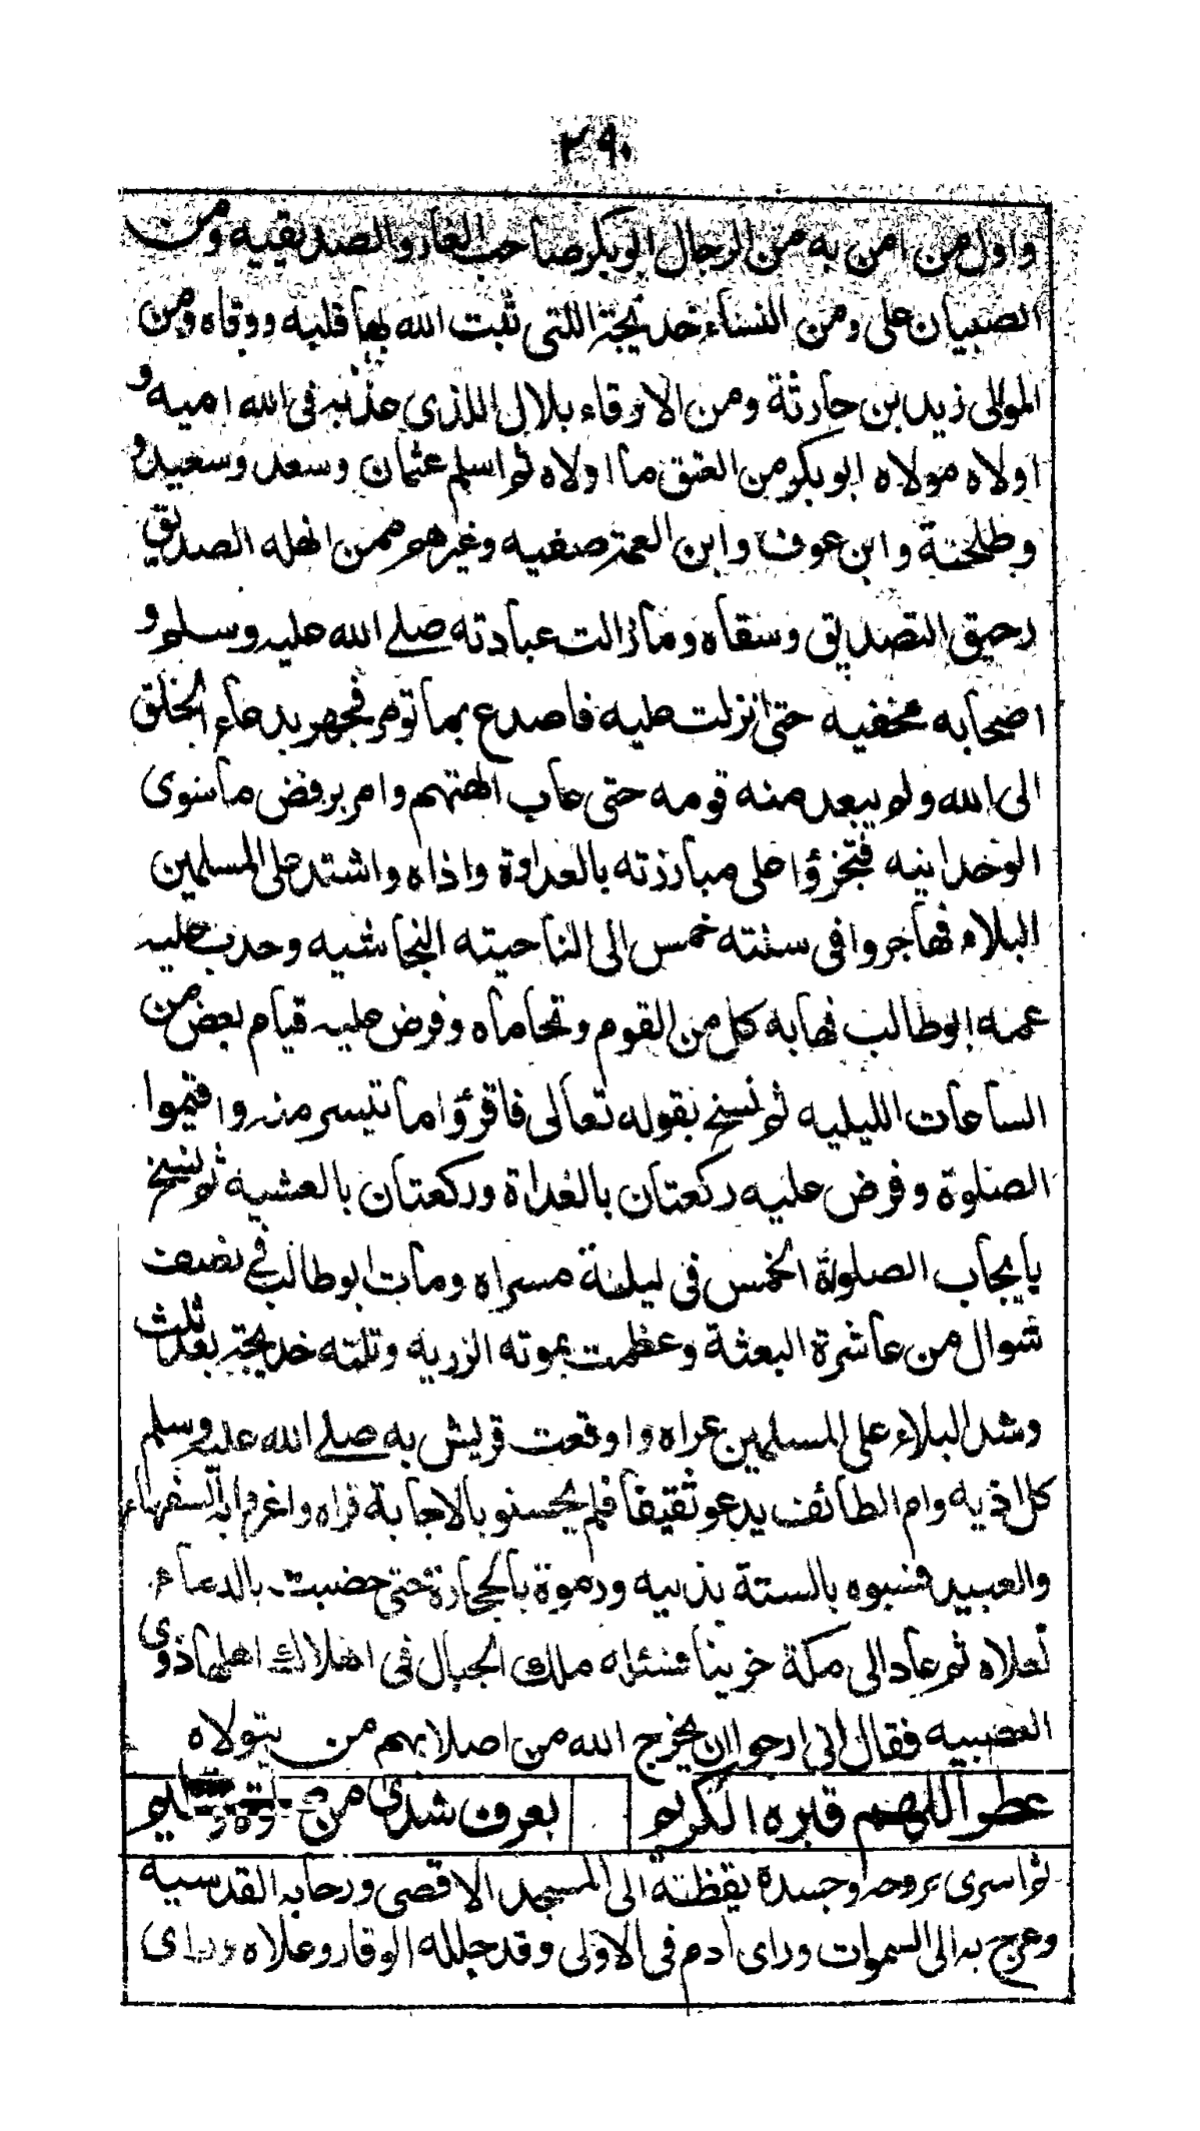 ٢٩٠
واول من امن به من الرجال ابوبكر صاحب الغار والصديقيه ومن
الصبيان على ومن النساء خديجة اللتى ثبت الله بها قلبه ووقاه ومن
الموالى زيد بن حارثة ومن الارقاء بلال اللذى عذبه فى الله اميه و
اولاه مولاه ابوبكر من العتق ما اولاه ثم اسلم عثمان وسعد وسعيد و
وطلحة وابن عوف وابن العمة صفيه وغيرهم ممن انهله الصديق
رحيق التصديق وسقاه ومازالت عبادته صلے الله عليه وسلم و
اصحابه مخفيه حتى انزلت عليه فاصدع بما تومر فجهر بدعاء الخلق
الى الله ولم يبعد منه قومه حتى عاب الهتهم وامر برفض ماسوى
الوحدانيه فتجرؤا على مبارزته بالعداوة واذاه واشتد على المسلمين
البلاء فهاجروا فى سنته خمس الى الناحيته النجاشيه وحدب عليه
عمه ابوطالب فهابه كل من القوم وتحاماه وفرض عليه قيام بعض من
الساعات الليليه ثم نسخ بقوله تعالى فاقرؤا ما تيسر منه واقيموا
الصلوة وفرض عليه ركعتان بالغداة وركعتان بالعشيه ثم نسخ
بايجاب الصلوة الخمس فى ليلة مسراه ومات ابوطالب فے نصف
شوال من عاشرة البعثة وعظمت بموته الزريه وتلته خديجة بعد ثلث
وشد البلاء على المسلمين عراه واوقعت قريش به صلے الله عليه وسلم
كل اذيه وام الطائف يدعو ثقيفا فلم يحسنو بالاجابة قراه واغروا به السفهاء
والعبيد فسبوه بالستة بذيه ورموة بالحجارة حتى خضبت بالدماء
نعلاه ثم عاد الى مكة حزينا فسئله ملك الجبال فى اهلاك اهلها ذوى
العصبيه فقال انى ارجوا ان يخرج الله من اصلابهم من يتولاه
عطر اللهم قبره الكريم بعرف شذى من
ثم اسرى بروحه وجسدة يقظة الى المسجد الاقصى ورحابه القدسيه
وعرج به الى السموات وراى ادم فى الاولى وقد جلله الوقار وعلاه وراى